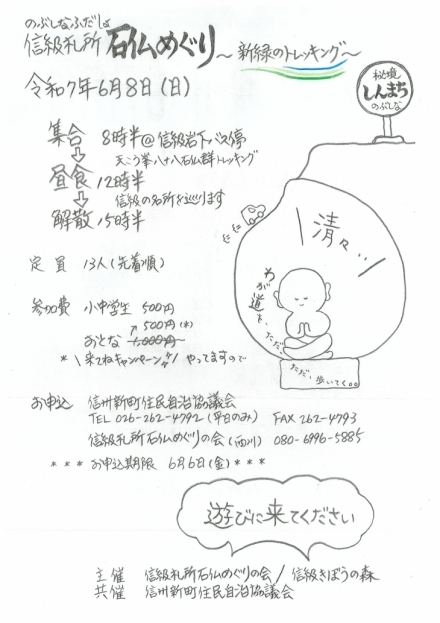 のぶしなふだしょ
信級札所 石仏めぐり ～新緑のトレッキング～
令和7年6月8日(日)
秘境
しんまち
のぶしな
集合 8時半@信級岩下バス停
天こう峯八十八石仏群トレッキング
昼食 12時半
信級の名所を巡ります
解散 15時半
清々ッッ
わが道を、ただ
ただ、歩いてく。。
定員 13人(先着順)
参加費 小中学生 500円
500円(※)
おとな 1,000円
* \来てねキャンペーン// やってますので
お申込 信州新町住民自治協議会
TEL 026-262-4792(平日のみ) FAX 262-4793
信級札所石仏めぐりの会(西川) 080-6996-5885
*** お申込期限 6月6日(金) ***
遊びに来てください
主催 信級札所石仏めぐりの会/信級きぼうの森
共催 信州新町住民自治協議会